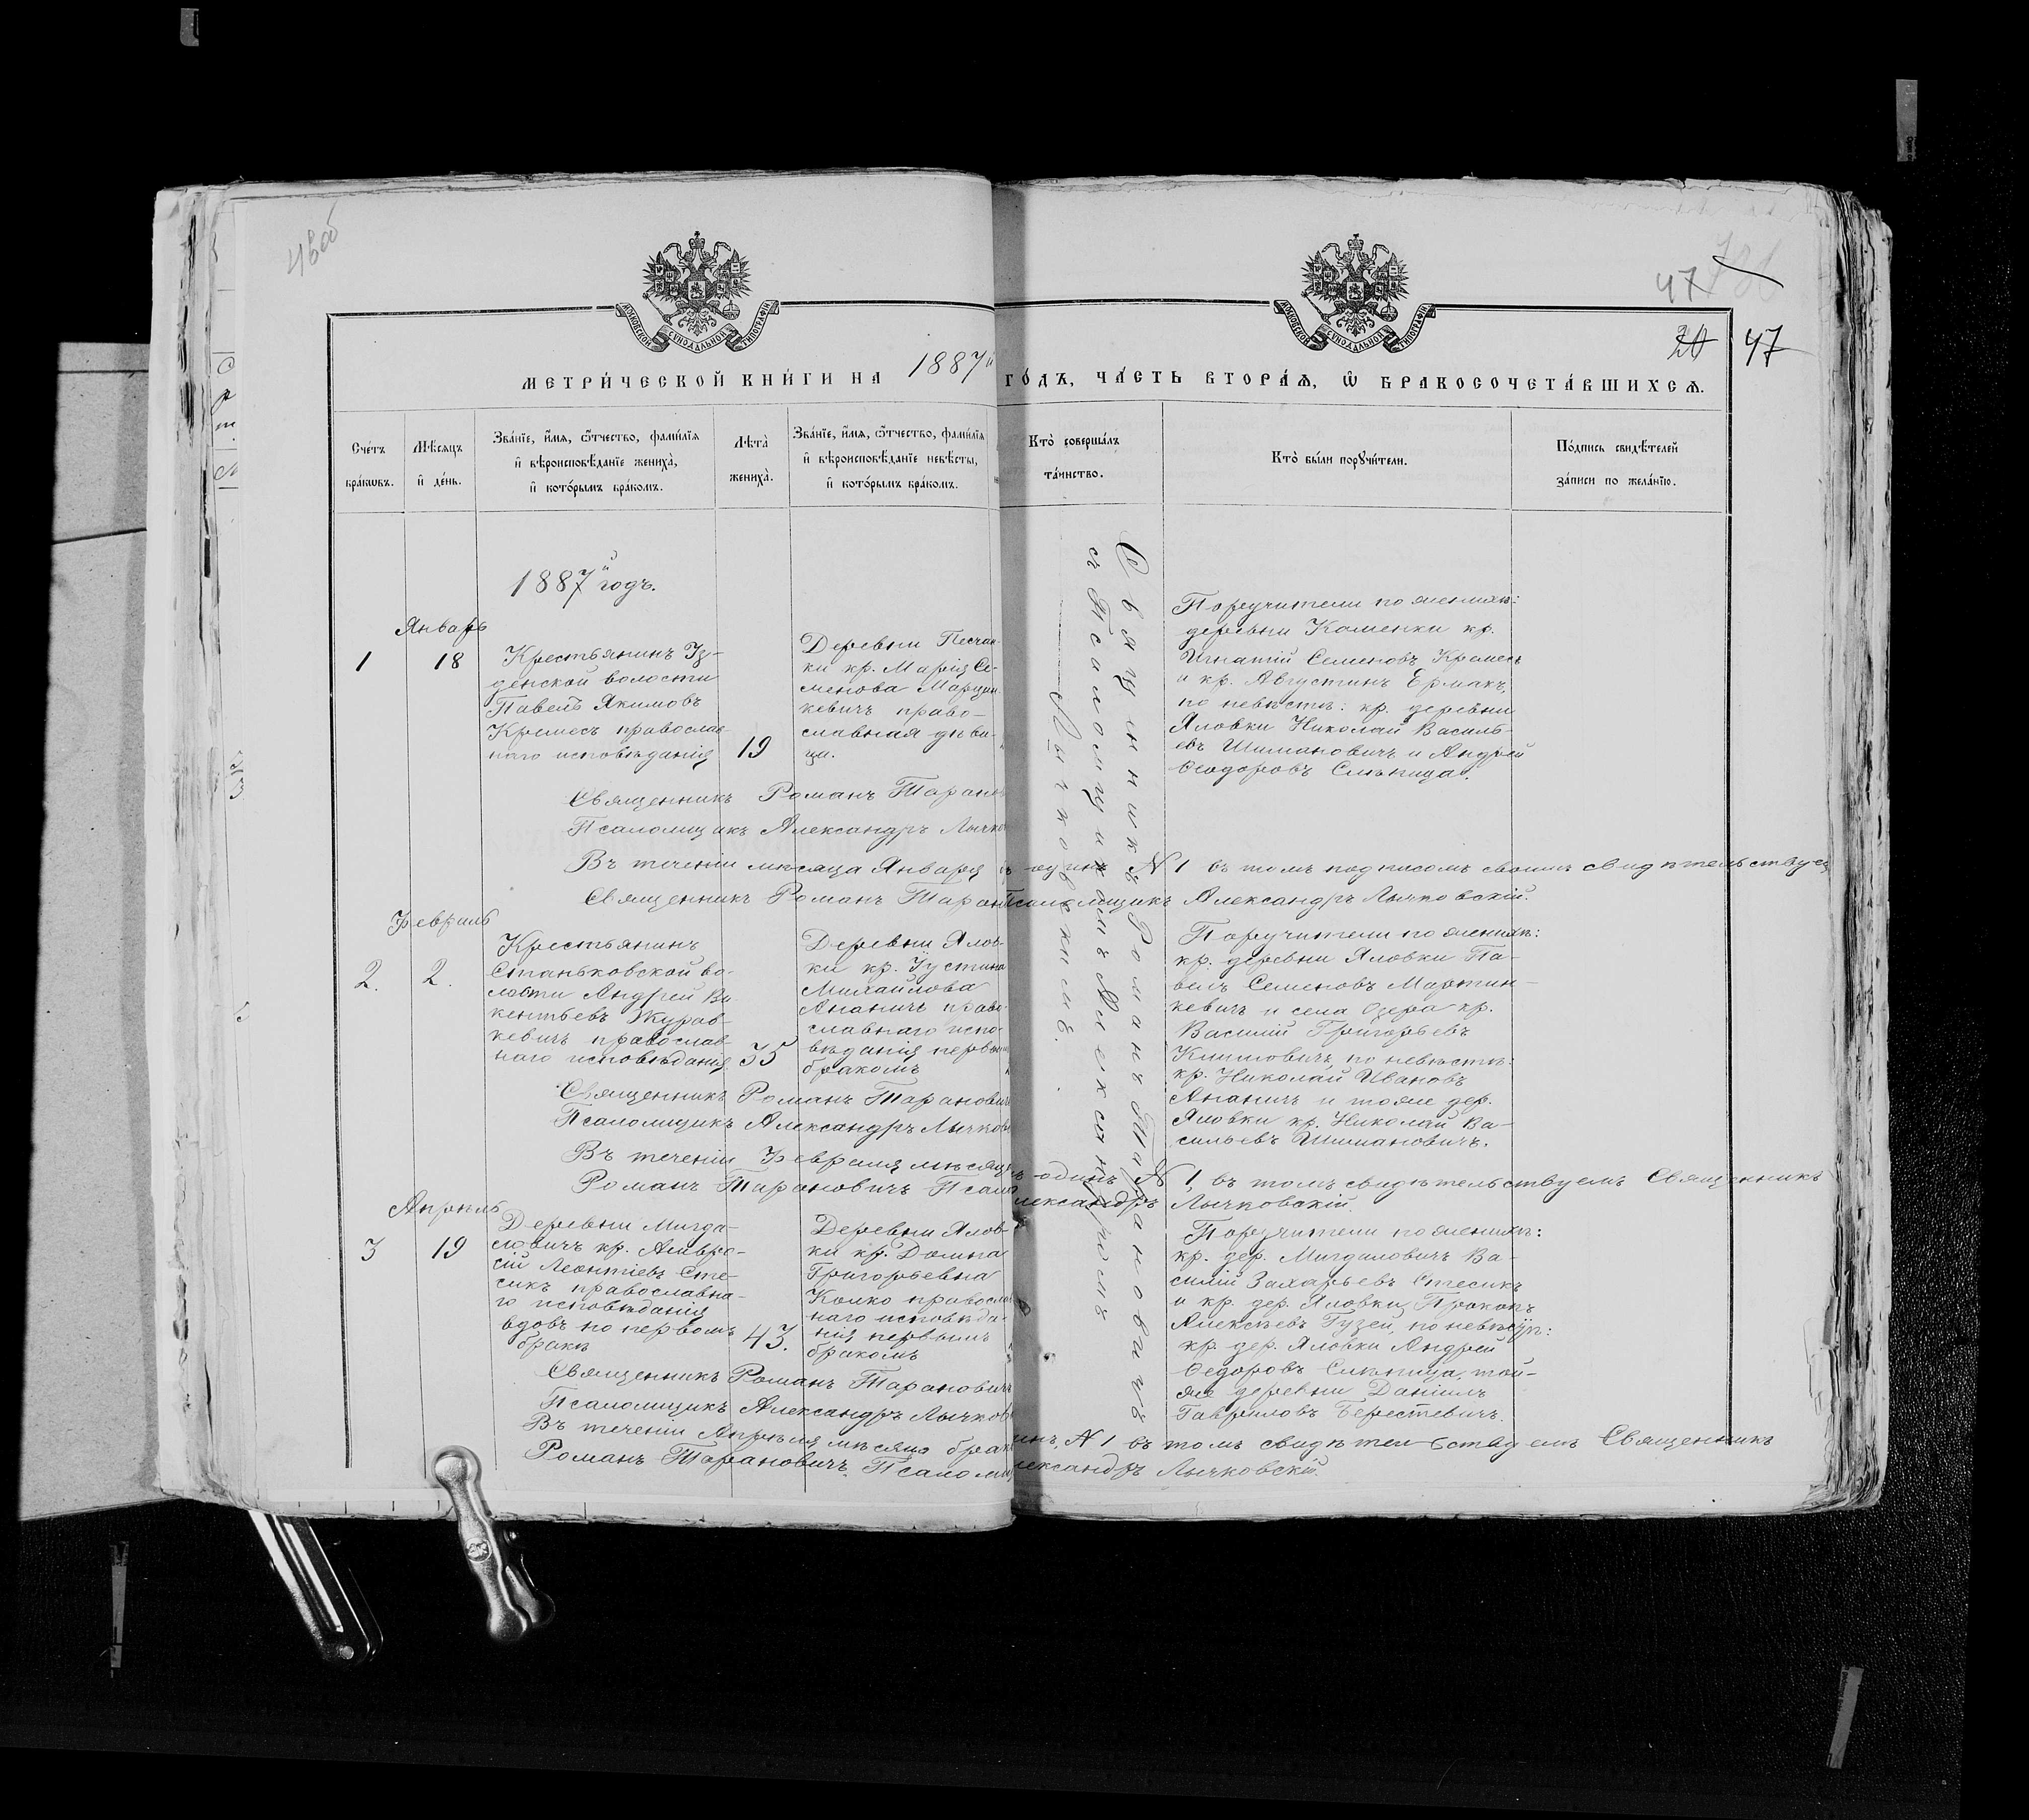 46об
47
20 47
МОСКОВСКОЙ СѴНОДАЛЬНОЙ ТИПОГРАФІИ
МОСКОВСКОЙ СѴНОДАЛЬНОЙ ТИПОГРАФІИ
МЕТРИ́ЧЕСКОЙ КНИ́ГИ НА 1887й ГО́ДЪ, ЧА́СТЬ ВТОРА́Ѧ, Ѽ БРАКОСОЧЕТА́ВШИХСѦ.
Сче́тъ бра́кѡвъ.
Мѣ́сѧцъ и҆ де́нь.
Зва́нїе, и҆́мѧ, ѻ҆́тчество, фами́лїѧ и҆ вѣроисповѣ́данїе жениха̀, и҆ кото́рымъ бра́комъ.
Лѣ́та жениха̀.
Зва́нїе, и҆́мѧ, ѻ҆́тчество, фами́лїѧ и҆ вѣроисповѣ́данїе невѣ́сты, и҆ кото́рымъ бра́комъ.
Кто̀ соверша́лъ та́инство.
Кто̀ бы́ли порꙋчи́тели.
По́дпись свидѣ́телей за́писи по жела́нїю.
1887й годъ.
Январь
1
18
Крестьянинъ Уз-
денской волости
Павелъ Якимовъ
Кремесъ православ-
наго исповѣданія
19
Деревни Песчан-
ки кр. Марія Се-
менова Марцин-
кевичъ право-
славная дѣви-
ца.
Священникомъ Романъ Тарановичъ
съ Псаломщикомъ Александромъ
Лычковскимъ.
Поручители по женихѣ:
деревни Каменки кр.
Игнатій Семеновъ Кремесъ
и кр. Августинъ Ермакъ,
по невѣстѣ: кр. деревни
Яловки Николай Василь-
евъ Шимановичъ и Андрей
Ѳеодоровъ Слѣпица.
Священникъ Романъ Таранов
Псаломщикъ Александръ Лычко
Въ теченіи мѣсяца Января одинъ N 1 въ томъ подписомъ своимъ свидѣтельствуемъ
Священникъ Романъ Таран Псаломщикъ Александръ Лычковскій.
Февраль
2.
2.
Крестьянинъ
Станьковской во-
лости Андрей Ви-
кентьевъ Журав-
кевичъ православ-
наго исповѣданія
35
Деревни Ялов-
ки кр. Іустина
Михайлова
Ананичъ право-
славнаго испо-
вѣданія первымъ
бракомъ
Поручители по женихѣ:
кр. деревни Яловки Па-
велъ Семеновъ Мартин-
кевичъ и села Озера кр.
Василій Григорьевъ
Климовичъ, по невѣстѣ:
кр. Николай Ивановъ
Ананичъ и тояже дер.
Яловки кр. Николай Ва-
сильевъ Шимановичъ.
Священникъ Романъ Тарановичъ
Псаломщикъ Александръ Лычков
Въ теченіи Февраля мѣсяца одинъ N 1, въ томъ свидѣтельствуемъ Священникъ
Романъ Тарановичъ Псало лександръ Лычковскій.
Апрѣль
3
19
Деревни Мигда-
ловичъ кр. Амвро-
сій Леонтіевъ Сте-
сикъ православна-
го исповѣданія
вдовъ по первомъ
бракѣ
43.
Деревни Ялов-
ки кр. Домна
Григорьевна
Колко православ
наго исповѣда-
нія первымъ
бракомъ
Поручители по женихѣ:
кр. дер. Мигдаловичъ Ва-
силій Захарьевъ Стесикъ
и кр. дер. Яловки Прокопъ
Алексѣевъ Гузей, по невѣстѣ:
кр. дер. Яловки Андрей
Ѳедоровъ Слѣпица, той-
же деревни Даніилъ
Гавриловъ Берестевичъ.
Священникъ Романъ Тарановичъ
Псаломщикъ Александръ Лычков
Въ теченіи Апрѣля мѣсяца брак инъ, N 1 въ томъ свидѣтельствуемъ Священникъ
Романъ Тарановичъ. Псаломщ лександръ Лычковскій.